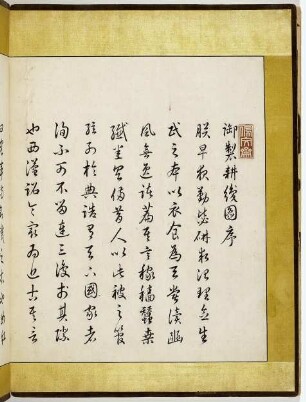 御製耕織圖序
朕早夜勤毖研求治理念生
民之本以衣食為天嘗讀豳
風無逸諸篇其言稼穡蠶桑
纖悉具備昔人以此被之管
絃列於典誥有天下國家者
洵不可不留連三復於其際
也西漢詔令最為近古其言